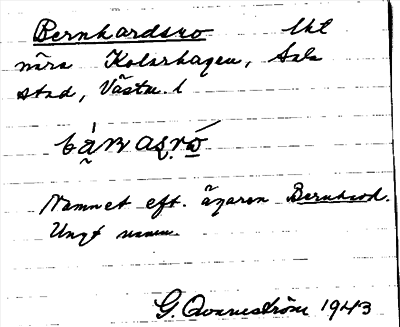 Bernhardsro lht
nära Kolarhagen, Sala
stad, Västm. l
Namnet eft. ägaren Bernhard.
Ungt namn.
G. Qvarnström 1943